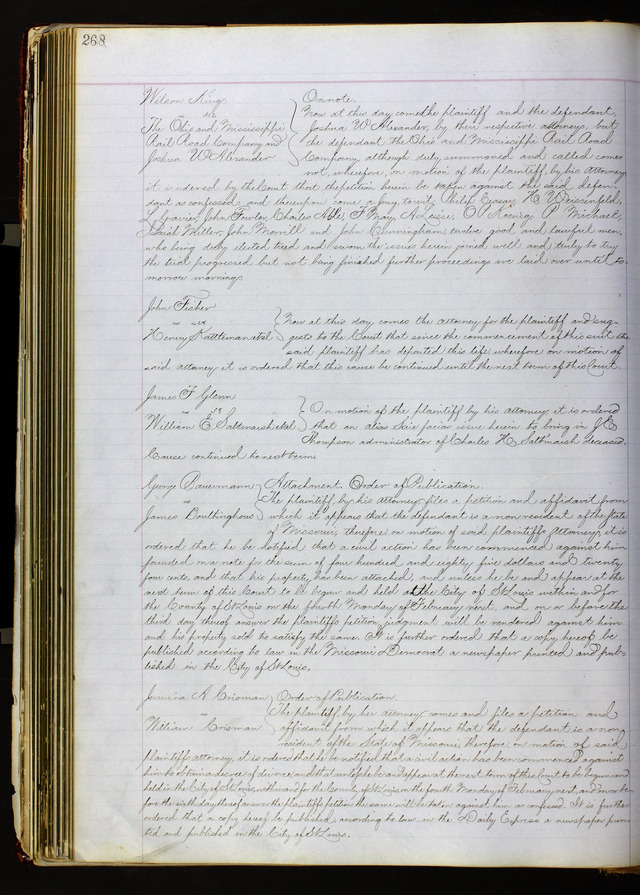 268
Wilson King
vs
The Ohio and Mississippi
Rail Road Company and
Joshua W Alexander
On note.
Now at this day comes the plaintiff and the defendant,
Joshua W Alexander, by their respective attorneys, but
the defendant the Ohio and Mississippi Rail Road
Company, although duly summoned and called comes
not, wherefore, on motion of the plaintiff, by his attorney
it is ordered by the Court that the petition herein be taken against the said defen-
dant as confessed, and thereupon come a jury to wit, Philip H Weissenfeld,
John Finley, Charles Able, F May, A O P Koenig, P Michael,
Isaiah Miller, John Morrill and John Cunningham twelve good and lawful men,
who being duly elected tried and sworn the issues herein joined well and truly to try
the trial progressed but not being finished further proceedings are laid over until to
morrow morning
John Fisher
vs
Henry Kattleman et al
Now at this day comes the attorney for the plaintiff and sug-
gests to the Court that since the commencement of this suit the
said plaintiff has departed this life, wherefore on motion of
said attorney it is ordered that this cause be continued until the next term of this Court.
James F Glenn
vs
William E Saltmarsh et al
On motion of the plaintiff by his attorney it is ordered
that an alias Scire facias issue herein to bring in J C
Thompson administrator of Charles H Saltmarsh deceased.
Cause continued to next term
George Bauermann
vs
James Douthinghous
Attachment. Order of Publication.
The plaintiff, by his attorney files a petition and affidavit from
which it appears that the defendant is a non resident of the State
of Missouri, therefore, on motion of said plaintiffs attorney, it is
ordered that he be notified that a civil action has been commenced against him
founded on a note for the sum of four hundred and eighty five dollars and twenty
four cents, and that his property has been attached, and unless he be and appear at the
next term of this Court to be begun and held at the City of St Louis within and for
the County of St Louis on the fourth Monday of February next, and on or before the
third day thereof answer the plaintiffs petition, judgment will be rendered against him
and his property sold to satisfy the same. It is further ordered that a copy hereof be
published according to law in the Missouri Democrat a newspaper printed and pub-
lished in the City of St Louis.
A Crisman
vs
William Crisman
Order of Publication.
The plaintiff, by her attorney, comes and files a petition and
affidavit from which it appears that the defendant is a non
resident of the State of Missouri, therefore, on motion of said
plaintiffs attorney, it is ordered that he be notified that a civil action has been commenced against
him to obtain a decree of divorce, and that unless he be and appear at the next term of this Court to be begun and
held in the City of St Louis, within and for the County of St Louis on the fourth Monday of February next, and on or be-
fore the sixth day thereof answer the plaintiffs petition the same will be taken against him as confessed. It is further
ordered that a copy hereof be published, according to law in the Daily Express a newspaper prin-
ted and published in the City of St Louis.